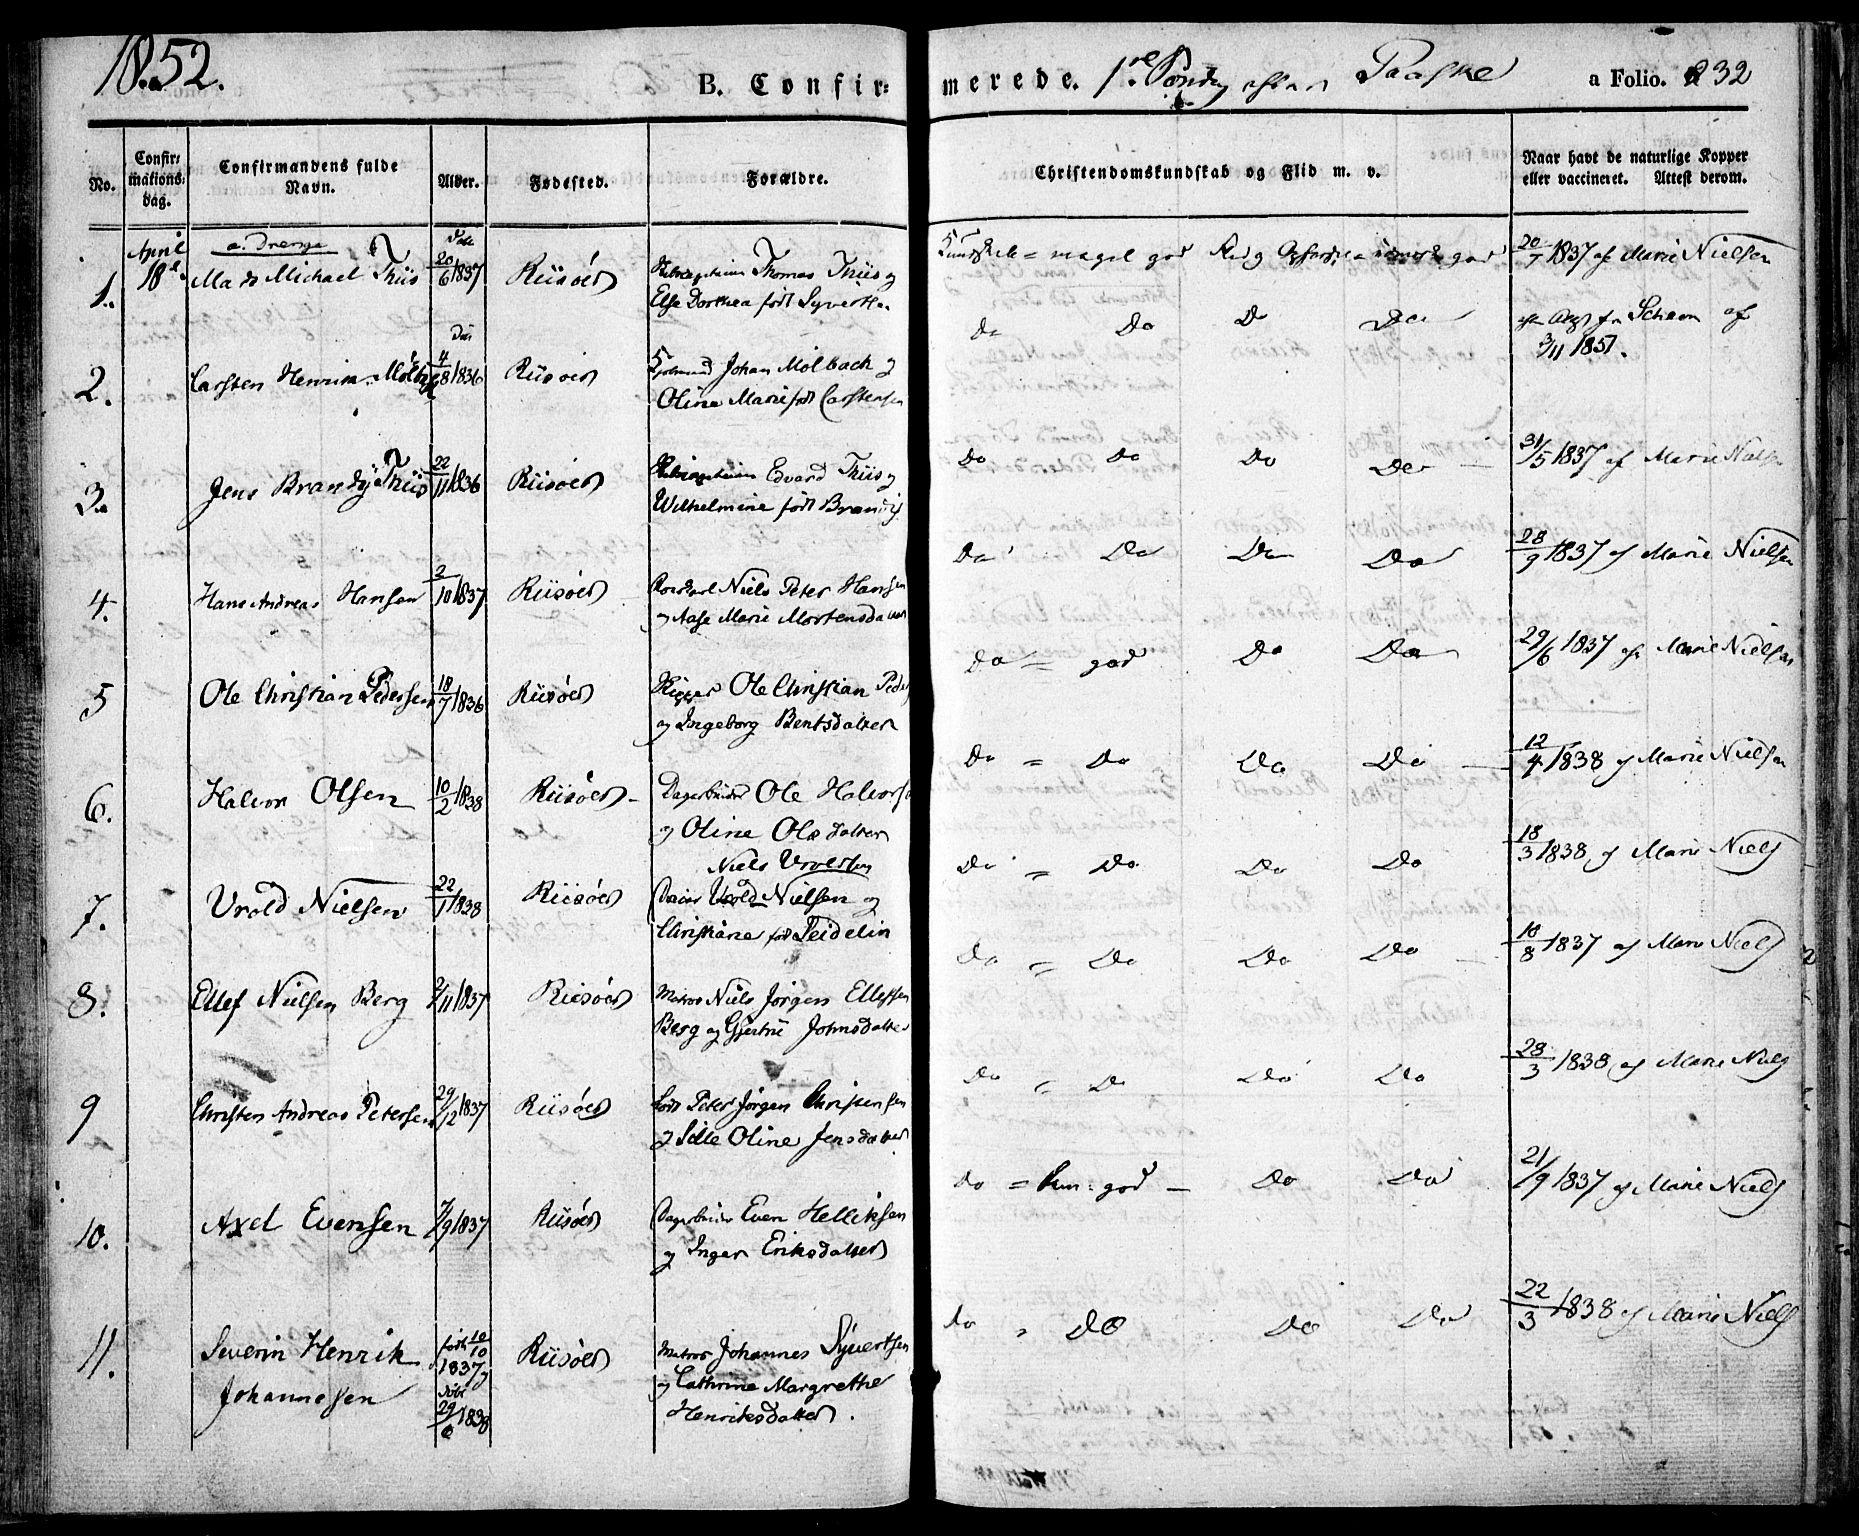 1852.
B. Confirmerede. 1ste Søndag efter Paaske a Folio. 232
No. Confirmations-dag. Confirmandens fulde Navn. Alder. Fødested. Forældre. Christendomskundskab og Flid m. v. Naar havt de naturlige Kopper eller vaccineret. Attest derom.
April a. Drenge
1. 18de Mads Michael Thiis 20/6 1837 Riisöer Thomas Thiis og meget god god 20/7 1837 af Marie Nielsen
Else Dorthea født Syverts
2. Carsten Henrik Molbach 4/8 1836 Riisöer Johan Molbach og Do Do Do Do Schawn af
Oline Marie født Carstensen 3/11 1851.
3. Jens Brandÿ Thiis 22/11 1836 Riisöer Edvard Thiis og Do Do Do Do 31/5 1837 af Marie Nielsen
Wilhelmine født Brandÿ
4. Hans Andreas Hansen 2/10 1837 Riisöer Niels Peter Hansen Do Do Do Do 28/9 1837 af Marie Nielsen
og Aase Marie Mortensdatter
5 Ole Christian Pedersen 18/7 1836 Riisöer Rigger Ole Christian Peders Do = god Do Do 29/6 1837 af Marie Nielsen
og Ingeborg Bentsdatter
6. Halvor Olsen 10/2 1838 Riisöer Ole Halvors Do = Do Do Do 12/4 1838 af Marie Nielsen
og Oline Olsdatter
Niels Vroldsen
7. Vrold Nielsen 22/1 1838 Riisöer Vrold Nielsen og Do = Do Do Do 18/3 1838 af Marie Niels
Christiane født Seidelin
8. Ellef Nielsen Berg 2/11 1837 Riisöer Matros Niels Jörgen Ellefsen Do = Do Do Do 18/8 1837 af Marie Niels
Berg og Gjertrü Johnsdatter
9 Christen Andreas Petersen 29/12 1837 Riisöer Lods Peter Jörgen Christensen Do = Do Do Do 28/3 1838 af Marie Niels
og Sille Oline Jensdatter
10. Axel Evensen 7/9 1837 Riisöer Even Helliksen Do = god Do Do 21/9 1837 af Marie Niels
og Inger Eriksdatter
11. Severin Henrik født 10/10 Riisöer Matros Johannes Syvertsen do Do Do Do 22/3 1838 af Marie Niels
Johannesen 1837 og Cathrine Margrethe
døbt Henriksdatter.
29/6 1838